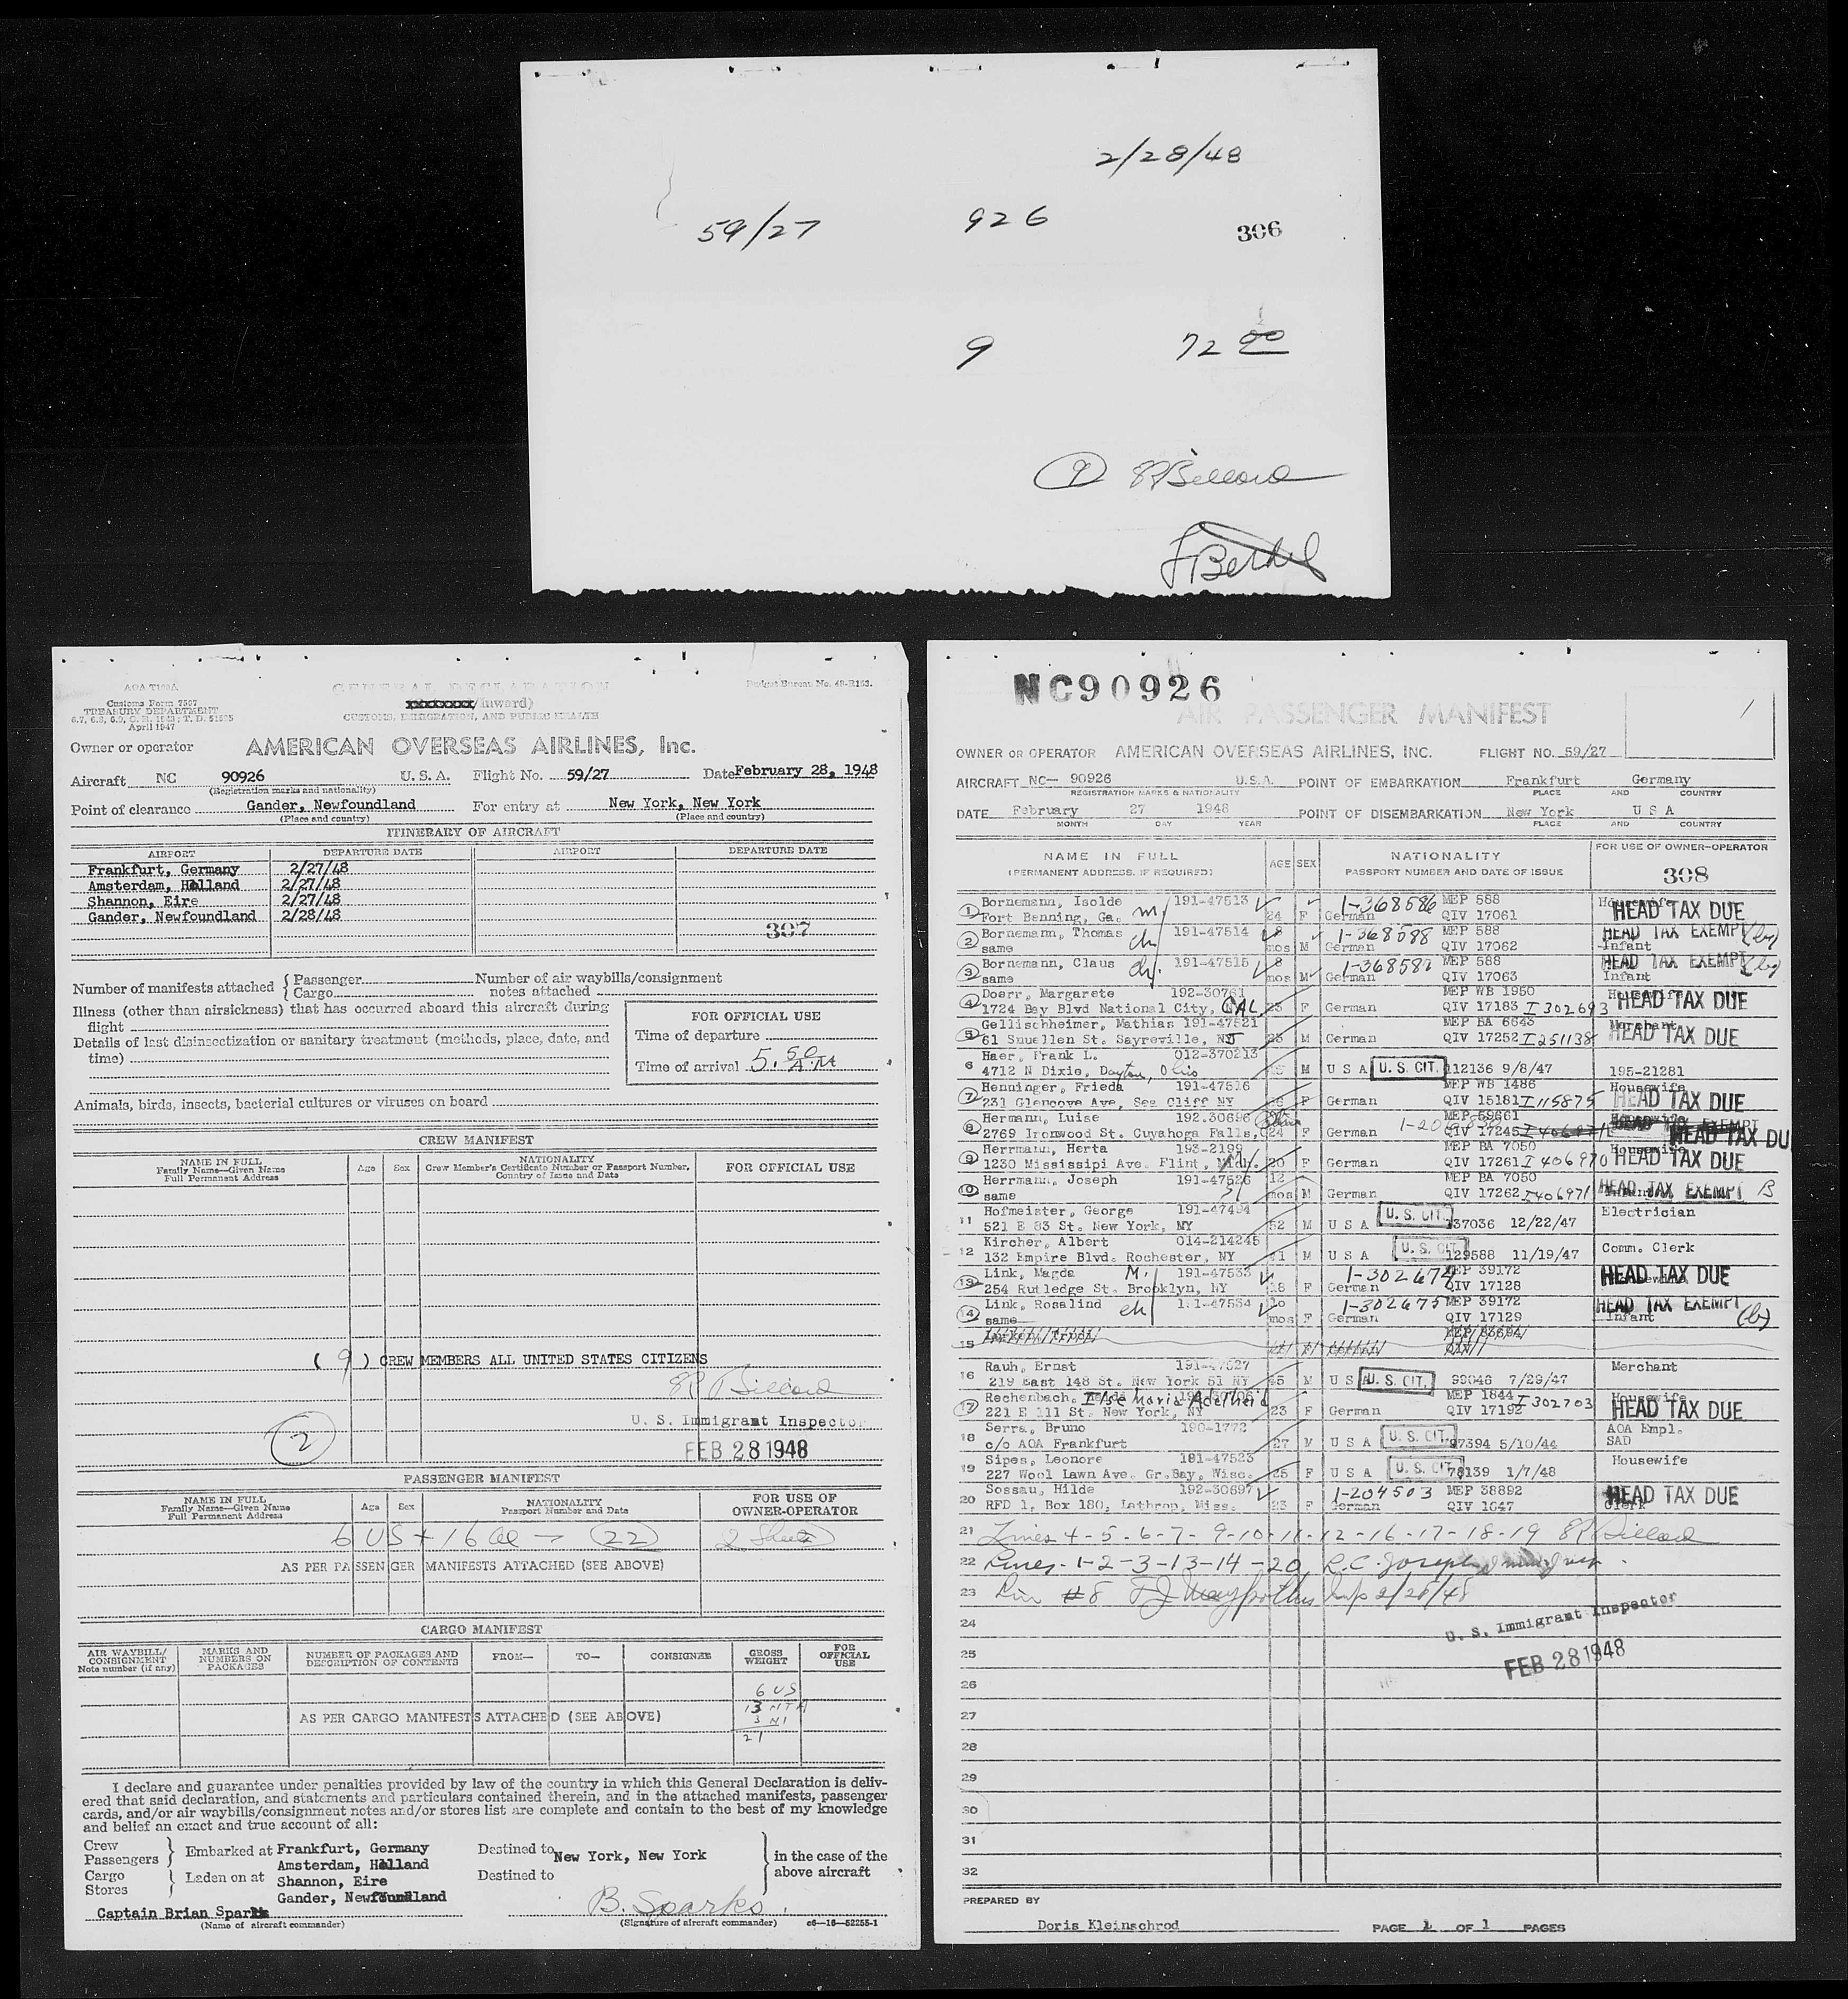 2/28/48
59/27 926 306
9 72 00
9 
AOA T100A
Customs Form 7507
TREASURY DEPARTMENT
April 1947
GENERAL DECLARATION
/Inward)
CUSTOMS, IMMIGRATION, AND PUBLIC HEALTH
Budget Bureau No. 48-R163.
Owner or operator AMERICAN OVERSEAS AIRLINES, Inc.
Aircraft NC 90926 U. S. A. Flight No. 59/27 Date February 28, 1948
(Registration marks and nationality)
Point of clearance Gander, Newfoundland For entry at New York, New York
(Place and country) (Place and country)
ITINERARY OF AIRCRAFT
AIRPORT DEPARTURE DATE AIRPORT DEPARTURE DATE
Frankfurt, Germany 2/27/48
Amsterdam, Holland 2/27/48
Shannon, Eire 2/27/48
Gander, Newfoundland 2/28/48
307
Number of manifests attached { Passenger Number of air waybills/consignment
Cargo notes attached
Illness (other than airsickness) that has occurred aboard this aircraft during
flight
Details of last disinsectization or sanitary treatment (methods, place, date, and
time)
FOR OFFICIAL USE
Time of departure
Time of arrival 5.50 A.M
Animals, birds, insects, bacterial cultures or viruses on board
CREW MANIFEST
NAME IN FULL
Family Name—Given Name
Full Permanent Address
Age Sex
NATIONALITY
Crew Member's Certificate Number or Passport Number,
Country of Issue and Date
FOR OFFICIAL USE
( 9 ) CREW MEMBERS ALL UNITED STATES CITIZENS
U. S. Immigrant Inspector
2
FEB 28 1948
PASSENGER MANIFEST
NAME IN FULL
Family Name—Given Name
Full Permanent Address
Age Sex
NATIONALITY
Passport Number and Date
FOR USE OF
OWNER-OPERATOR
6 US + 16 al — 22 2 Sheets
AS PER PASSENGER MANIFESTS ATTACHED (SEE ABOVE)
CARGO MANIFEST
AIR WAYBILL/
CONSIGNMENT
Note number (if any)
MARKS AND
NUMBERS ON
PACKAGES
NUMBER OF PACKAGES AND
DESCRIPTION OF CONTENTS
FROM— TO— CONSIGNEE
GROSS
WEIGHT
FOR
OFFICIAL
USE
6 US
13 NTA
3 NI
21
AS PER CARGO MANIFESTS ATTACHED (SEE ABOVE)
I declare and guarantee under penalties provided by law of the country in which this General Declaration is deliv-
ered that said declaration, and statements and particulars contained therein, and in the attached manifests, passenger
cards, and/or air waybills/consignment notes and/or stores list are complete and contain to the best of my knowledge
and belief an exact and true account of all:
Crew
Passengers } Embarked at Frankfurt, Germany Destined to New York, New York } in the case of the
Amsterdam, Holland above aircraft
Cargo
Stores } Laden on at Shannon, Eire Destined to
Gander, Newfoundland
Captain Brian Sparks B. Sparks
(Name of aircraft commander) (Signature of aircraft commander) c6—16—52255-1
NC90926
AIR PASSENGER MANIFEST
1
OWNER OR OPERATOR AMERICAN OVERSEAS AIRLINES, INC. FLIGHT NO. 59/27
AIRCRAFT NC— 90926 U.S.A. POINT OF EMBARKATION Frankfurt Germany
REGISTRATION MARKS & NATIONALITY PLACE AND COUNTRY
DATE February 27 1948 POINT OF DISEMBARKATION New York U S A
MONTH DAY YEAR PLACE AND COUNTRY
NAME IN FULL
(PERMANENT ADDRESS, IF REQUIRED)
AGE SEX
NATIONALITY
PASSPORT NUMBER AND DATE OF ISSUE
FOR USE OF OWNER-OPERATOR
308
1 Bornemann, Isolde 191-47513 1-368586 MEP 588 Housewife
Fort Benning, Ga. m 24 F German QIV 17061 HEAD TAX DUE
2 Bornemann, Thomas ch 191-47514 8 1-368588 MEP 588 HEAD TAX EXEMPT (b)
same mos M German QIV 17062 Infant
3 Bornemann, Claus ch. 191-47515 8 1-368587 MEP 588 HEAD TAX EXEMPT (b)
same mos M German QIV 17063 Infant
4 Doerr, Margarete 192-30761 MEP WB 1950 Housewife
1724 Bay Blvd National City, CAL 25 F German QIV 17183 I 302693 HEAD TAX DUE
5 Gellischheimer, Mathias 191-47521 MEP BA 6643 Merchant
61 Snuellen St. Sayreville, NJ M German QIV 17252 I 251138 HEAD TAX DUE
6 Haer, Frank L. 012-370213
4712 N Dixie, Dayton, Ohio M U S A U. S. CIT. 112136 9/8/47 195-21281
7 Henninger, Frieda 191-47516 MEP WB 1486 Housewife
231 Glencove Ave, Sea Cliff NY F German QIV 15181 I 115875 HEAD TAX DUE
8 Hermann, Luise 192.30696 MEP 59661
2769 Ironwood St. Cuyahoga Falls, 24 F German QIV 17245 HEAD TAX DU
9 Herrmann, Herta 193-2199 MEP BA 7050 Housewife
1230 Mississipi Ave. Flint, Mich. 20 F German QIV 17261 I 406970 HEAD TAX DUE
10 Herrmann, Joseph 191-47526 12 MEP BA 7050
same mos M German QIV 17262 I406971 HEAD TAX EXEMPT B
11 Hofmeister, George 191-47494 Electrician
521 E 83 St. New York, NY 52 M U S A U. S. CIT. 137036 12/22/47
12 Kircher, Albert 014-214245
132 Empire Blvd. Rochester, NY 41 M U S A U. S. CIT 129588 11/19/47 Comm. Clerk
13 Link, Magda M. 191-47533 1-302674 MEP 39172
254 Rutledge St. Brooklyn, NY F German QIV 17128 HEAD TAX DUE
14 Link, Rosalind ch 191-47534 1-302675 MEP 39172 HEAD TAX EXEMPT
same mos F German QIV 17129 Infant (b)
15
16 Rauh, Ernst 191-47527 Merchant
219 East 148 St. New York 51 NY 45 M U S A U. S. CIT. 99046 7/29/47
17 Rechenbach, Ilse Maria Adelheid MEP 1844 I 302703 Housewife
221 E 111 St. New York, NY 23 F German QIV 17192 HEAD TAX DUE
18 Serra, Bruno 190-1772 AOA Empl.
c/o AOA Frankfurt 27 M U S A U. S. CIT. 97394 5/10/44 SAD
19 Sipes, Leonore 191-47523 Housewife
227 Wool Lawn Ave. Gr.Bay, Wisc. 25 F U S A U. S. CIT 78139 1/7/48
20 Sossau, Hilde 192-30697 1-204503 MEP 38892
RFD 1, Box 180, Lathrop, Miss. 23 F German QIV 1047 Clerk HEAD TAX DUE
21 Lines 4-5-6-7-9-10-11-12-16-17-18-19
22 Lines-1-2-3-13-14-20, R.C. Joseph
23 Line #8 Insp 2/28/48
24
U. S. Immigrant Inspector
25
FEB 28 1948
26
27
28
29
30
31
32
PREPARED BY
Doris Kleinschrod PAGE 1 OF 1 PAGES